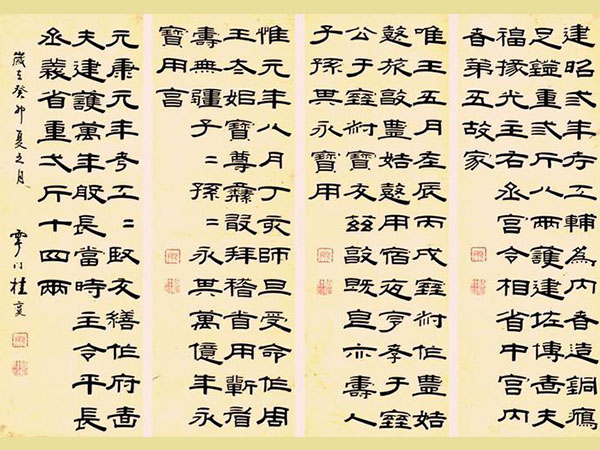 建昭弍年考工輔為內者造銅鴈
足鐙重弍斤八兩護建佐博嗇夫
福掾光主右丞宮令相省中宮內
者第五故家
唯王五月在辰丙戌室叔作豐姞
憝旅敦豐姞憝用宿夜亨孝于室
公于室叔友茲敦既皀亦壽人
子孫其永寶用
惟元年八月丁亥師旦受命作周
王太姒寶尊彝敢拜稽首用蘄眉
壽無疆子二孫二永其萬億年永
寶用言
元康元年考工二賢友繕作府嗇
夫建護萬年般長當時主令平長
丞義省重弍斤十四兩
歲在癸卯夏之月 雩門桂馥